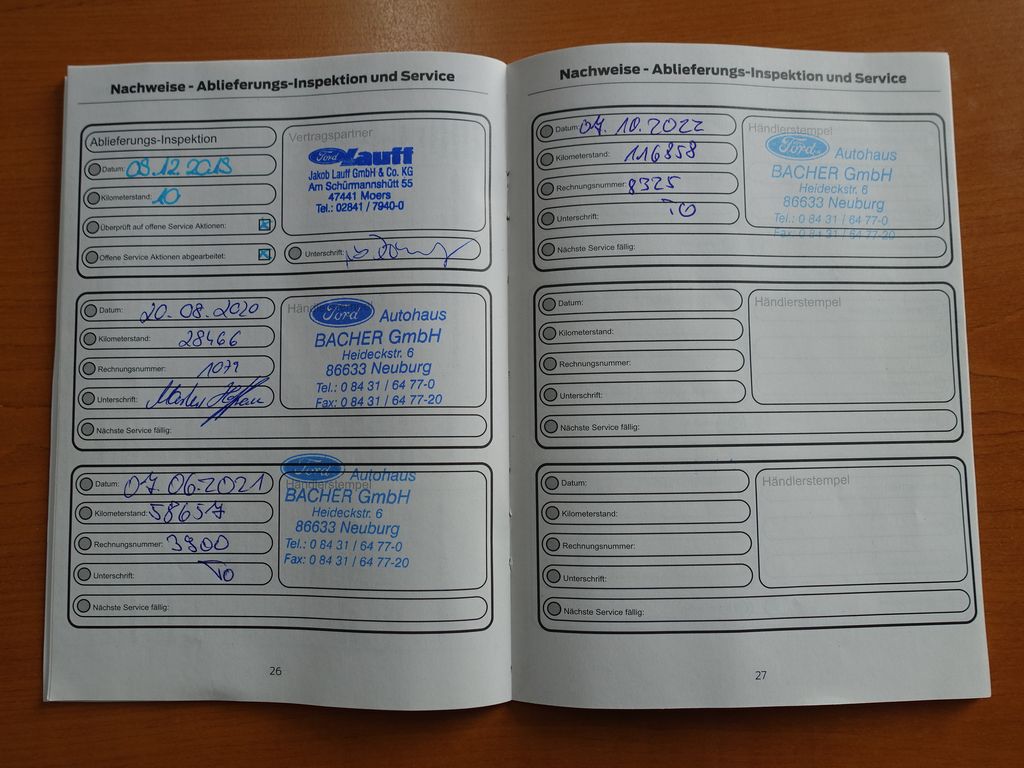 Nachweise - Ablieferungs-Inspektion und Service
Ablieferungs-Inspektion
Vertragspartner
Datum: 09.12.2019
Ford Lauff
Jakob Lauff GmbH & Co. KG
Am Schürmannshütt 55
47441 Moers
Tel.: 02841 / 7940-0
Kilometerstand: 10
Überprüft auf offene Service Aktionen:
Offene Service Aktionen abgearbeitet:
Unterschrift:
Datum: 20.08.2020
Ford Autohaus
BACHER GmbH
Heideckstr. 6
86633 Neuburg
Tel.: 0 84 31 / 64 77-0
Fax: 0 84 31 / 64 77-20
Kilometerstand: 28466
Rechnungsnummer: 1079
Unterschrift:
Nächste Service fällig:
Datum: 07.06.2021
Händlerstempel
Ford Autohaus
BACHER GmbH
Heideckstr. 6
86633 Neuburg
Tel.: 0 84 31 / 64 77-0
Fax: 0 84 31 / 64 77-20
Kilometerstand: 58657
Rechnungsnummer: 3900
Unterschrift: TO
Nächste Service fällig:
26
Nachweise - Ablieferungs-Inspektion und Service
Datum: 07.10.2022
Händlerstempel
Ford Autohaus
BACHER GmbH
Heideckstr. 6
86633 Neuburg
Tel.: 0 84 31 / 64 77-0
Fax: 0 84 31 / 64 77-20
Kilometerstand: 116858
Rechnungsnummer: 8325
Unterschrift: TO
Nächste Service fällig:
Datum:
Händlerstempel
Kilometerstand:
Rechnungsnummer:
Unterschrift:
Nächste Service fällig:
Datum:
Händlerstempel
Kilometerstand:
Rechnungsnummer:
Unterschrift:
Nächste Service fällig:
27